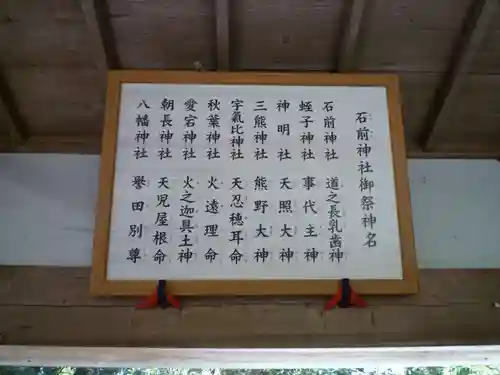 石前神社御祭神名
石前神社 道之長乳歯神
蛭子神社 事代主神
神明社 天照大神
三熊神社 熊野大神
宇氣比神社 天忍穂耳命
秋葉神社 火遠理命
愛宕神社 火之迦具土神
朝長神社 天児屋根命
八幡神社 誉田別尊